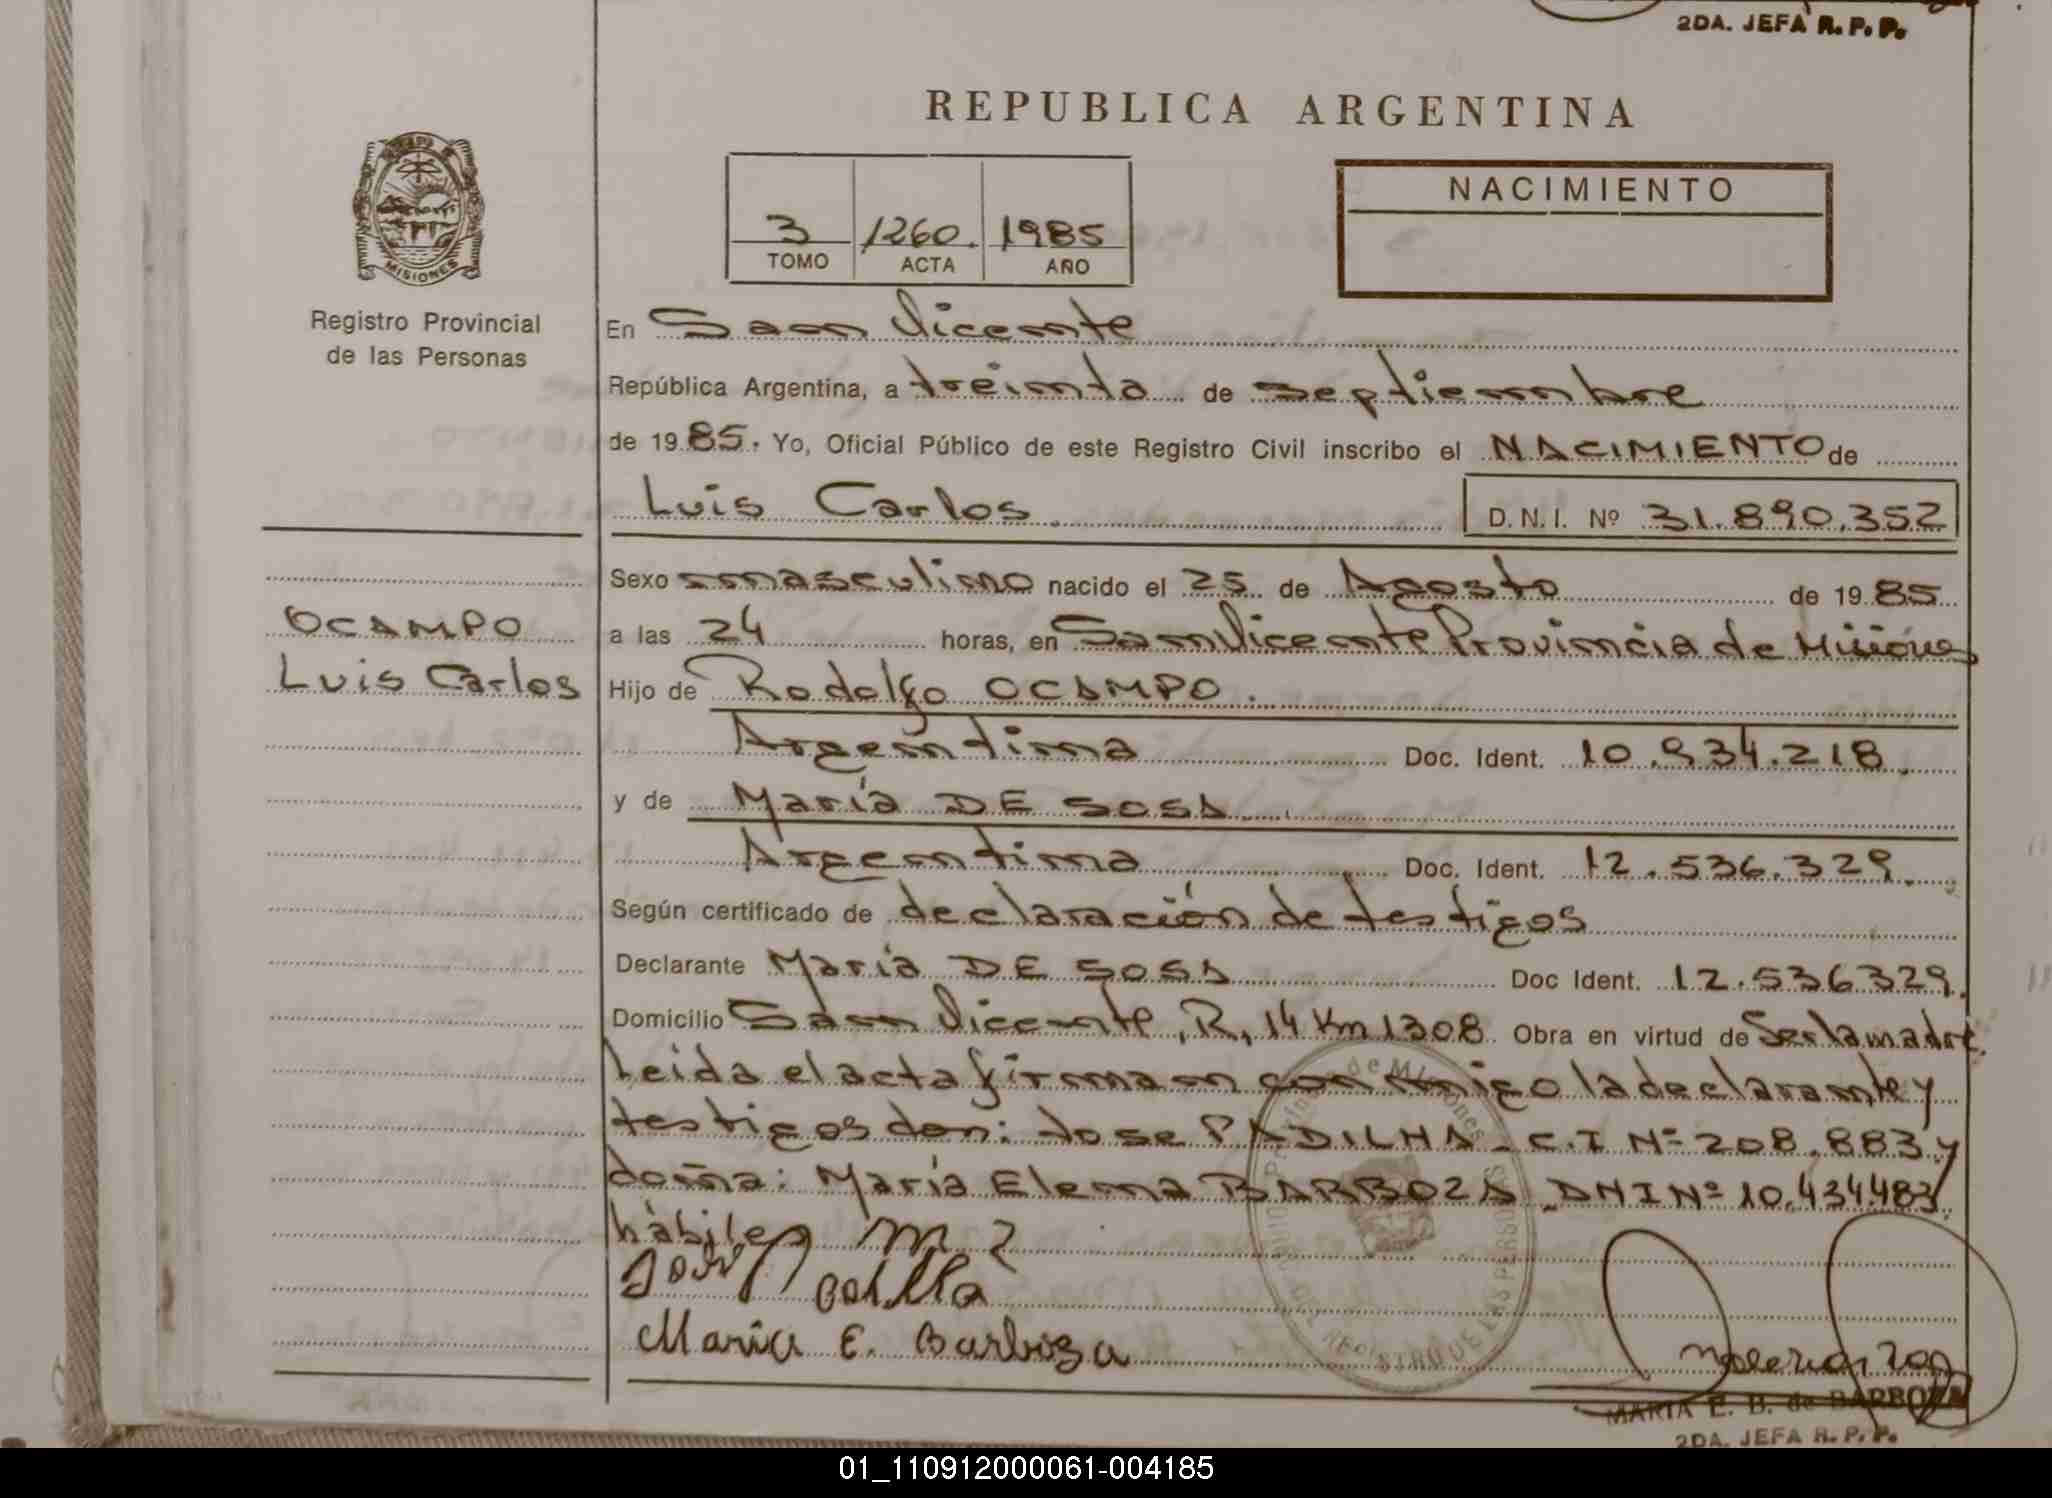 2DA. JEFA R. P. P.
REPUBLICA ARGENTINA
NACIMIENTO
3 1260. 1985
TOMO ACTA AÑO
MISIONES
Registro Provincial
de las Personas
En San Vicente
República Argentina, a treinta de septiembre
de 1985. Yo, Oficial Público de este Registro Civil inscribo el NACIMIENTO de
Luis Carlos D.N.I. Nº 31.890.352
Sexo masculino nacido el 25 de Agosto de 1985
OCAMPO
Luis Carlos
a las 24 horas, en San Vicente Provincia de Misiones
Hijo de Rodolfo OCAMPO.
Argentina Doc. Ident. 10.934.218.
y de María DE SOSA
Argentina Doc. Ident. 12.536.329.
Según certificado de declaración de testigos
Declarante María DE SOSA Doc Ident. 12.536329.
Domicilio San Vicente, R, 14 Km 1308 Obra en virtud de Ser la madre.
Leida el acta firman conmigo la declarante y
testigos don: Jose PADILHA - C.I Nº 208.883 y
doña: María Elena BARBOZA DNI Nº 10.434.483
hàbiles
María E. Barboza
MARIA E. B. de BARBOZA
2DA. JEFA R. P. P.
01_110912000061-004185